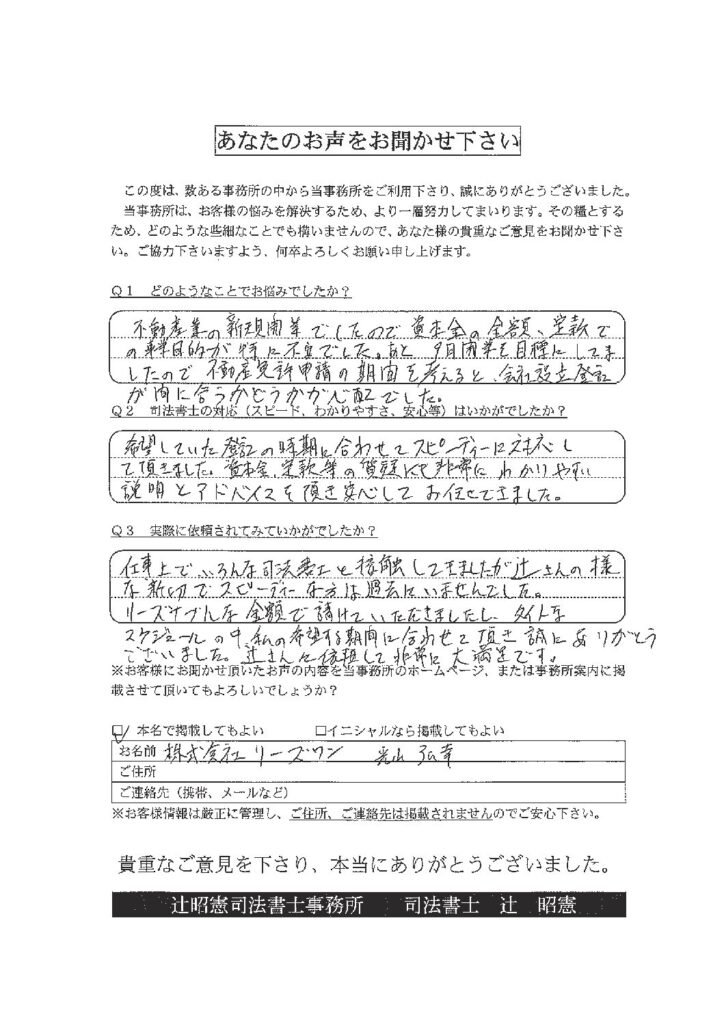 あなたのお声をお聞かせ下さい
この度は、数ある事務所の中から当事務所をご利用下さり、誠にありがとうございました。
当事務所は、お客様の悩みを解決するため、より一層努力してまいります。その糧とする
ため、どのような些細なことでも構いませんので、あなた様の貴重なご意見をお聞かせ下さ
い。ご協力下さいますよう、何卒よろしくお願い申し上げます。
Q1 どのようなことでお悩みでしたか？
不動産業の新規開業でしたので資本金の金額、定款で
の事業目的が特に不安でした。あと、9月開業を目標にしてま
したので不動産免許申請の期間を考えると、会社設立登記
が間に合うかどうかが心配でした。
Q2 司法書士の対応（スピード、わかりやすさ、安心等）はいかがでしたか？
希望していた登記の時期に合わせてスピーディーに対応し
て頂きました。資本金、定款等の質疑にも非常にわかりやすい
説明とアドバイスを頂き安心してお任せできました。
Q3 実際に依頼されてみていかがでしたか？
仕事上でいろんな司法書士と接触してきましたが辻さんの様
な親切でスピーディーな方は過去にいませんでした。
リーズナブルな金額で請けていただきましたし、タイトな
スケジュールの中、私の希望する期間に合わせて頂き誠にありがとう
ございました。辻さんに依頼して非常に大満足です。
※お客様にお聞かせ頂いたお声の内容を当事務所のホームページ、または事務所案内に掲
載させて頂いてもよろしいでしょうか？
☑ 本名で掲載してもよい □イニシャルなら掲載してもよい
お名前 株式会社リーズワン 光山 弘幸
ご住所
ご連絡先（携帯、メールなど）
※お客様情報は厳正に管理し、ご住所、ご連絡先は掲載されませんのでご安心下さい。
貴重なご意見を下さり、本当にありがとうございました。
辻昭憲司法書士事務所 司法書士 辻 昭憲